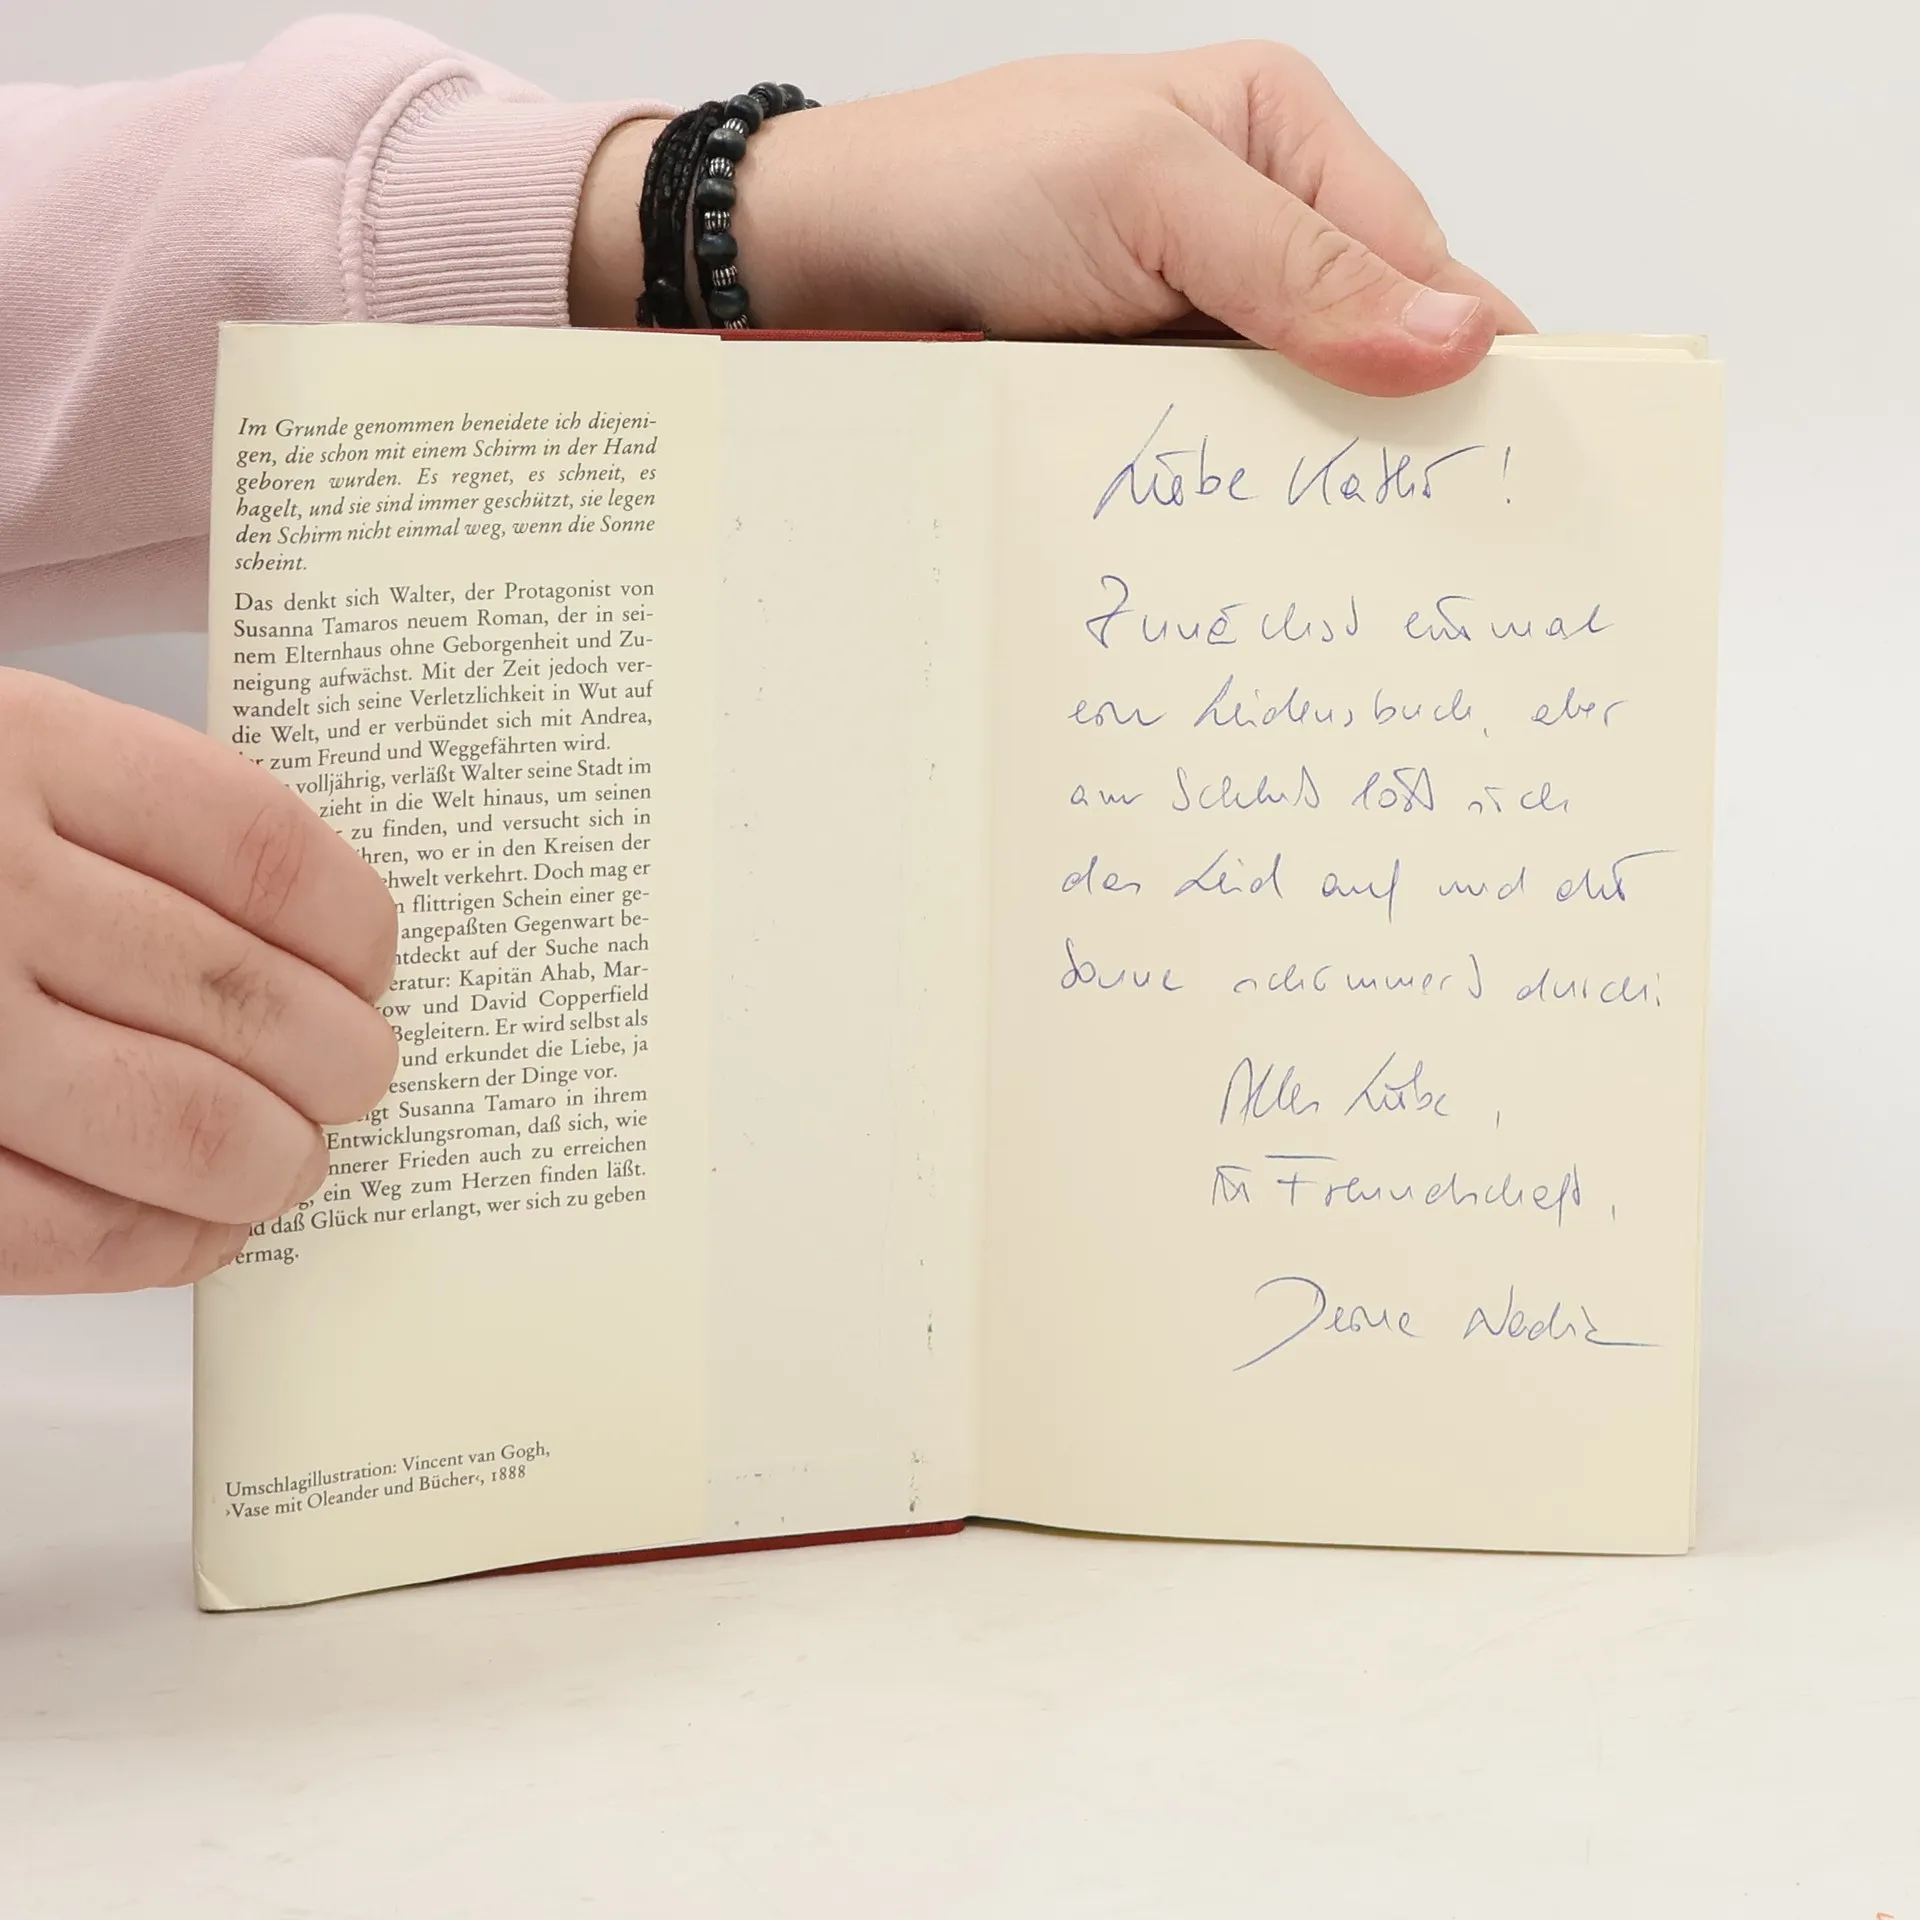 Im Grunde genommen beneidete ich diejeni-
gen, die schon mit einem Schirm in der Hand
geboren wurden. Es regnet, es schneit, es
hagelt, und sie sind immer geschützt, sie legen
den Schirm nicht einmal weg, wenn die Sonne
scheint.
Das denkt sich Walter, der Protagonist von
Susanna Tamaros neuem Roman, der in sei-
nem Elternhaus ohne Geborgenheit und Zu-
neigung aufwächst. Mit der Zeit jedoch ver-
wandelt sich seine Verletzlichkeit in Wut auf
die Welt, und er verbündet sich mit Andrea,
zum Freund und Weggefährten wird.
volljährig, verläßt Walter seine Stadt im
zieht in die Welt hinaus, um seinen
zu finden, und versucht sich in
wo er in den Kreisen der
verkehrt. Doch mag er
flittrigen Schein einer ge-
angepaßten Gegenwart be-
auf der Suche nach
Kapitän Ahab, Mar-
und David Copperfield
Begleitern. Er wird selbst als
und erkundet die Liebe, ja
der Dinge vor.
Susanna Tamaro in ihrem
Entwicklungsroman, daß sich, wie
Frieden auch zu erreichen
ein Weg zum Herzen finden läßt.
daß Glück nur erlangt, wer sich zu geben
vermag.
Umschlagillustration: Vincent van Gogh,
›Vase mit Oleander und Bücher‹, 1888
Liebe Kathi!
Zunächst einmal
ein Leidensbuch, aber
am Schluß löst sich
das Leid auf und die
Sonne schimmert durch:
Alles Liebe,
in Freundschaft,
Deine Nadia